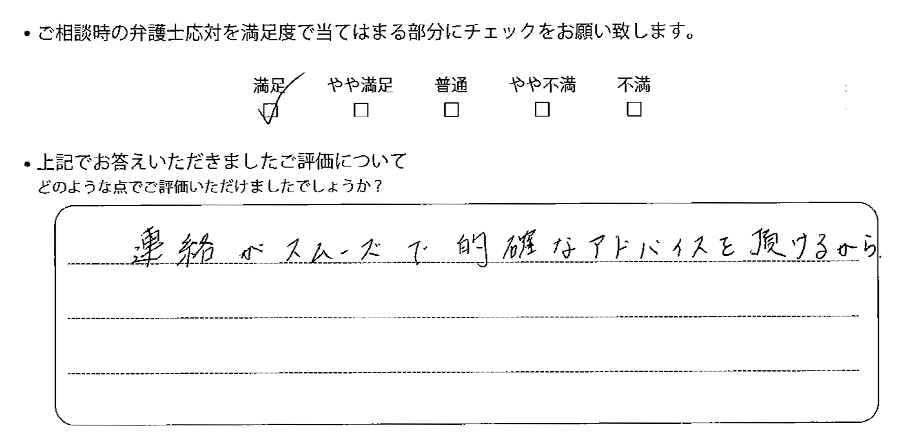 ・ご相談時の弁護士応対を満足度で当てはまる部分にチェックをお願い致します。
満足 やや満足 普通 やや不満 不満
☑ □ □ □ □
・上記でお答えいただきましたご評価について
どのような点でご評価いただけましたでしょうか？
連絡がスムーズで的確なアドバイスを頂けるから.